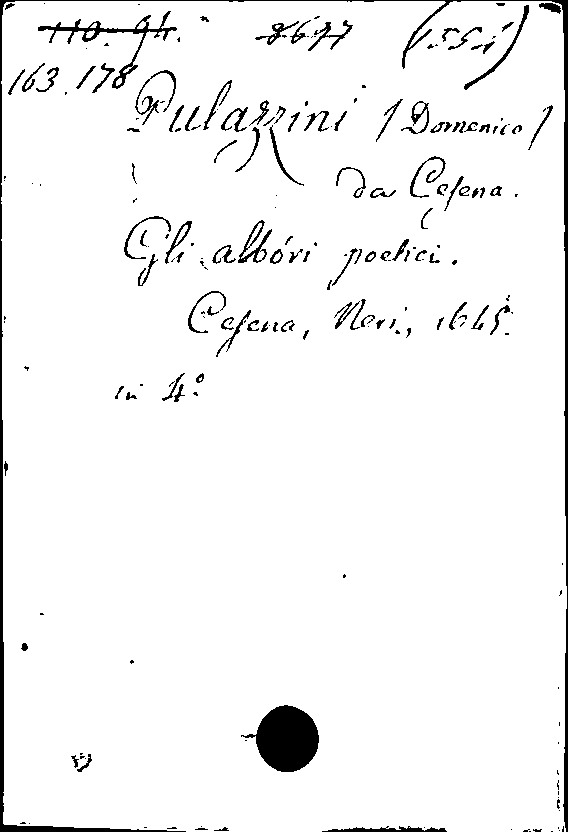 110. 94. 8697 (551)
163.178
Pulazzini (Domenico)
da Cesena.
Gli albóri poetici.
Cesena, Neri, 1645.
in 4.º